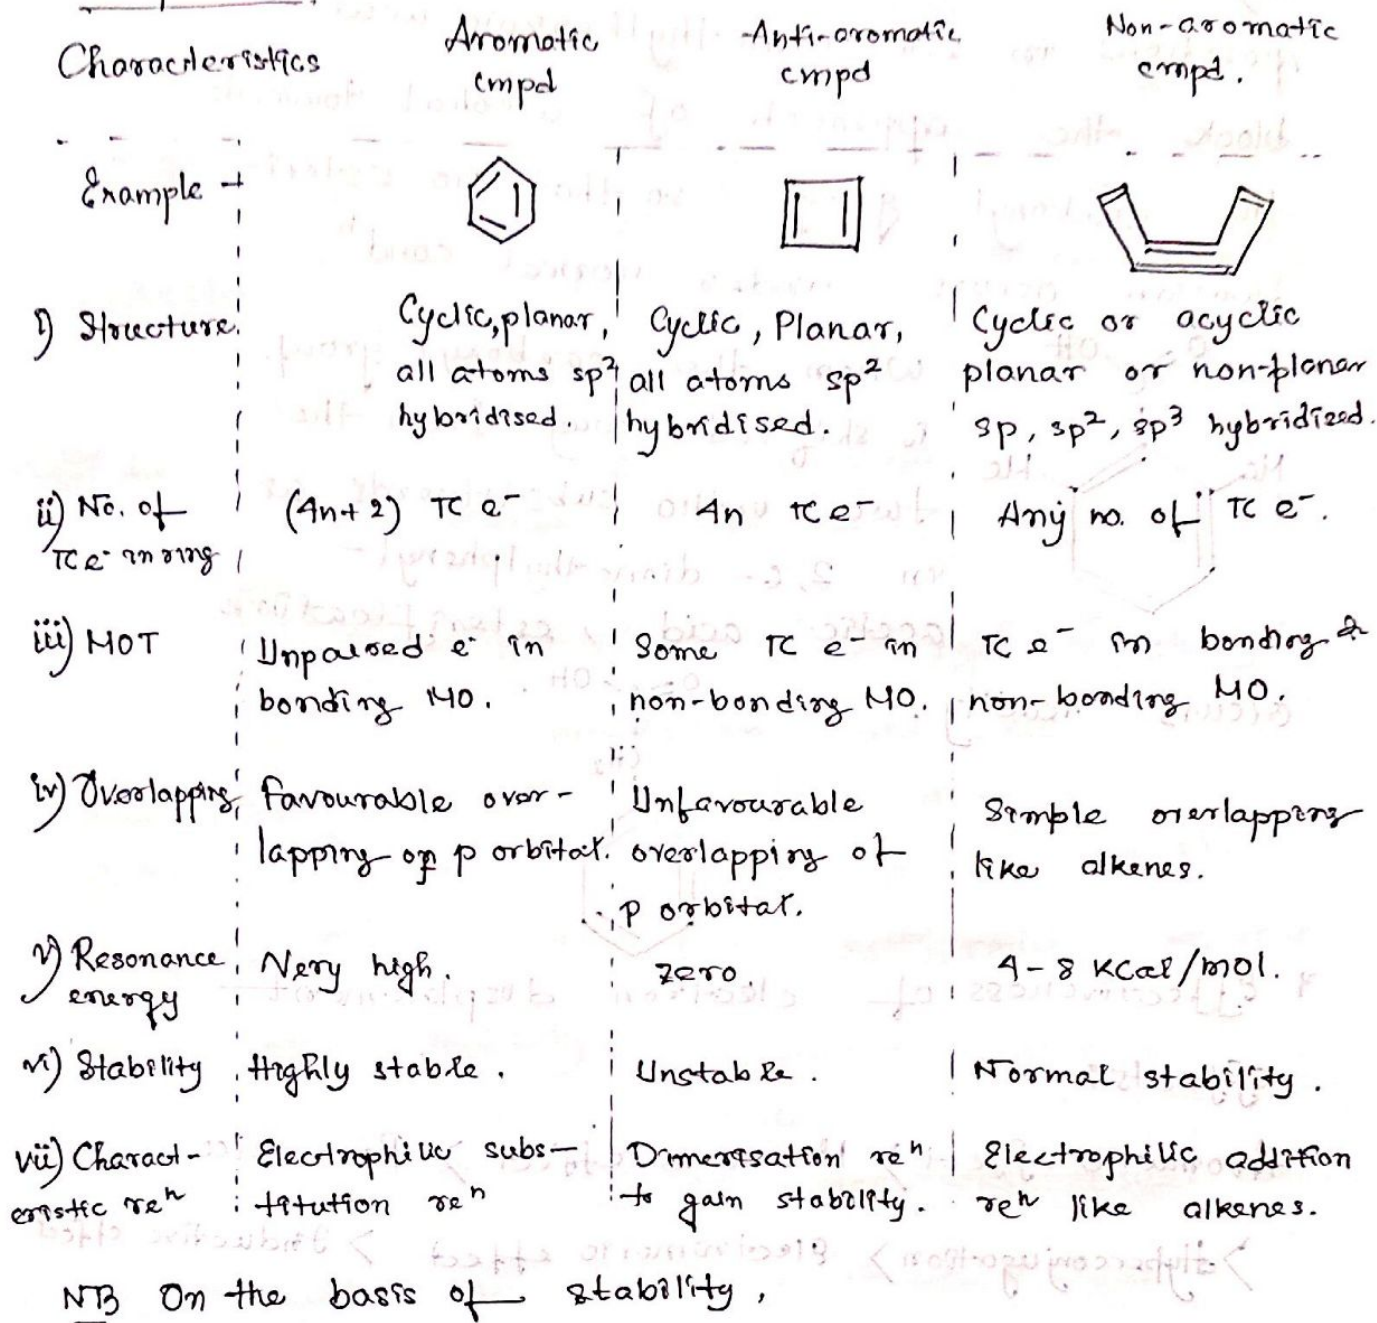 Characteristics
Aromatic
cmpd
Anti-aromatic
cmpd
Non-aromatic
cmpd.
Example →
i) Structure.
Cyclic, planar,
all atoms sp²
hybridised.
Cyclic, Planar,
all atoms sp²
hybridised.
Cyclic or acyclic
planar or non-planar
sp, sp², sp³ hybridized.
ii) No. of
π e⁻ in ring
(4n+2) π e⁻
4n π e⁻
Any no. of π e⁻.
iii) MOT
Unpaired e⁻ in
bonding MO.
Some π e⁻ in
non-bonding MO.
π e⁻ in bonding &
non-bonding MO.
iv) Overlapping
Favourable over-
lapping of p orbital.
Unfavourable
overlapping of
p orbital.
Simple overlapping
like alkenes.
v) Resonance
energy
Very high.
zero.
4-8 KCal/mol.
vi) Stability
Highly stable.
Unstable.
Normal stability.
vii) Charact-
eristic reⁿ
Electrophilic subs-
titution reⁿ
Dimerisation reⁿ
to gain stability.
Electrophilic addition
reⁿ like alkenes.
NB On the basis of stability,